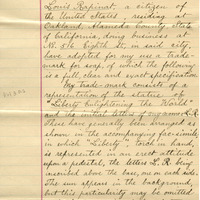 Louis Rapinat, a citizen of
the United States, residing at
Oakland, Alameda County, State
of California, doing business at
N. 516 Eighth St, in said city,
have adopted for my use a trade-
mark for soap of which the following
is a full, clear and exact specification.
My trade-mark consists of a
representation of the statue, of
"Liberty Enlightening the World"
and the initial letters of my name L.R.
These have generally been arranged as
shown in the accompanying fac-simile
in which "Liberty", torch in hand,
is represented in an erect attitude
upon a pedestal, the letters L. R. being
inscribed above the base, one on each side.
The sun appears in the background,
but this particularity may be omitted